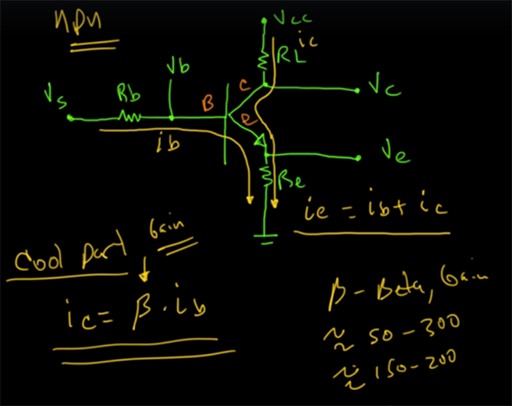 npn
Vcc
ic
RL
Vb
C
Vc
Vs
Rb
B
e
ib
Ve
Re
ie = ib + ic
Gain
Cool part
ic = β · ib
β - Beta, Gain
≈ 50 - 300
≈ 150 - 200